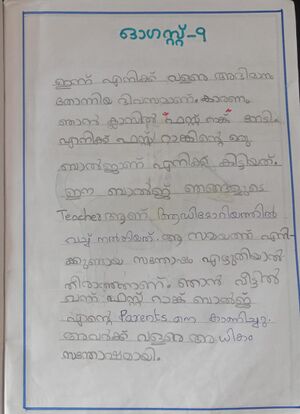 ഓഗസ്റ്റ്-9
ഇന്ന് എനിക്ക് വളരെ അഭിമാനം
തോന്നിയ ദിവസമാണ്. കാരണം
ഞാൻ ക്ലാസിൽ ഫസ്റ്റ് റാങ്ക് നേടി.
എനിക്ക് ഫസ്റ്റ് റാങ്കിന്റെ ഒരു
ബാൽജാണ് എനിക്ക് കിട്ടിയത്.
ഈ ബാൽജ് ഞങ്ങളുടെ
Teacher ആണ് ആഡിറ്റോറിയത്തിൽ
വച്ച് നൽകിയത്. ആ സമയത്ത് എനി-
ക്കുണ്ടായ സന്തോഷം എഴുതിയാൽ
തീരാത്തതാണ്. ഞാൻ വീട്ടിൽ
വന്ന് ഫസ്റ്റ് റാങ്ക് ബാൽജ്
എന്റെ Parents നെ കാണിച്ചു.
അവർക്ക് വളരെ അധികം
സന്തോഷമായി.